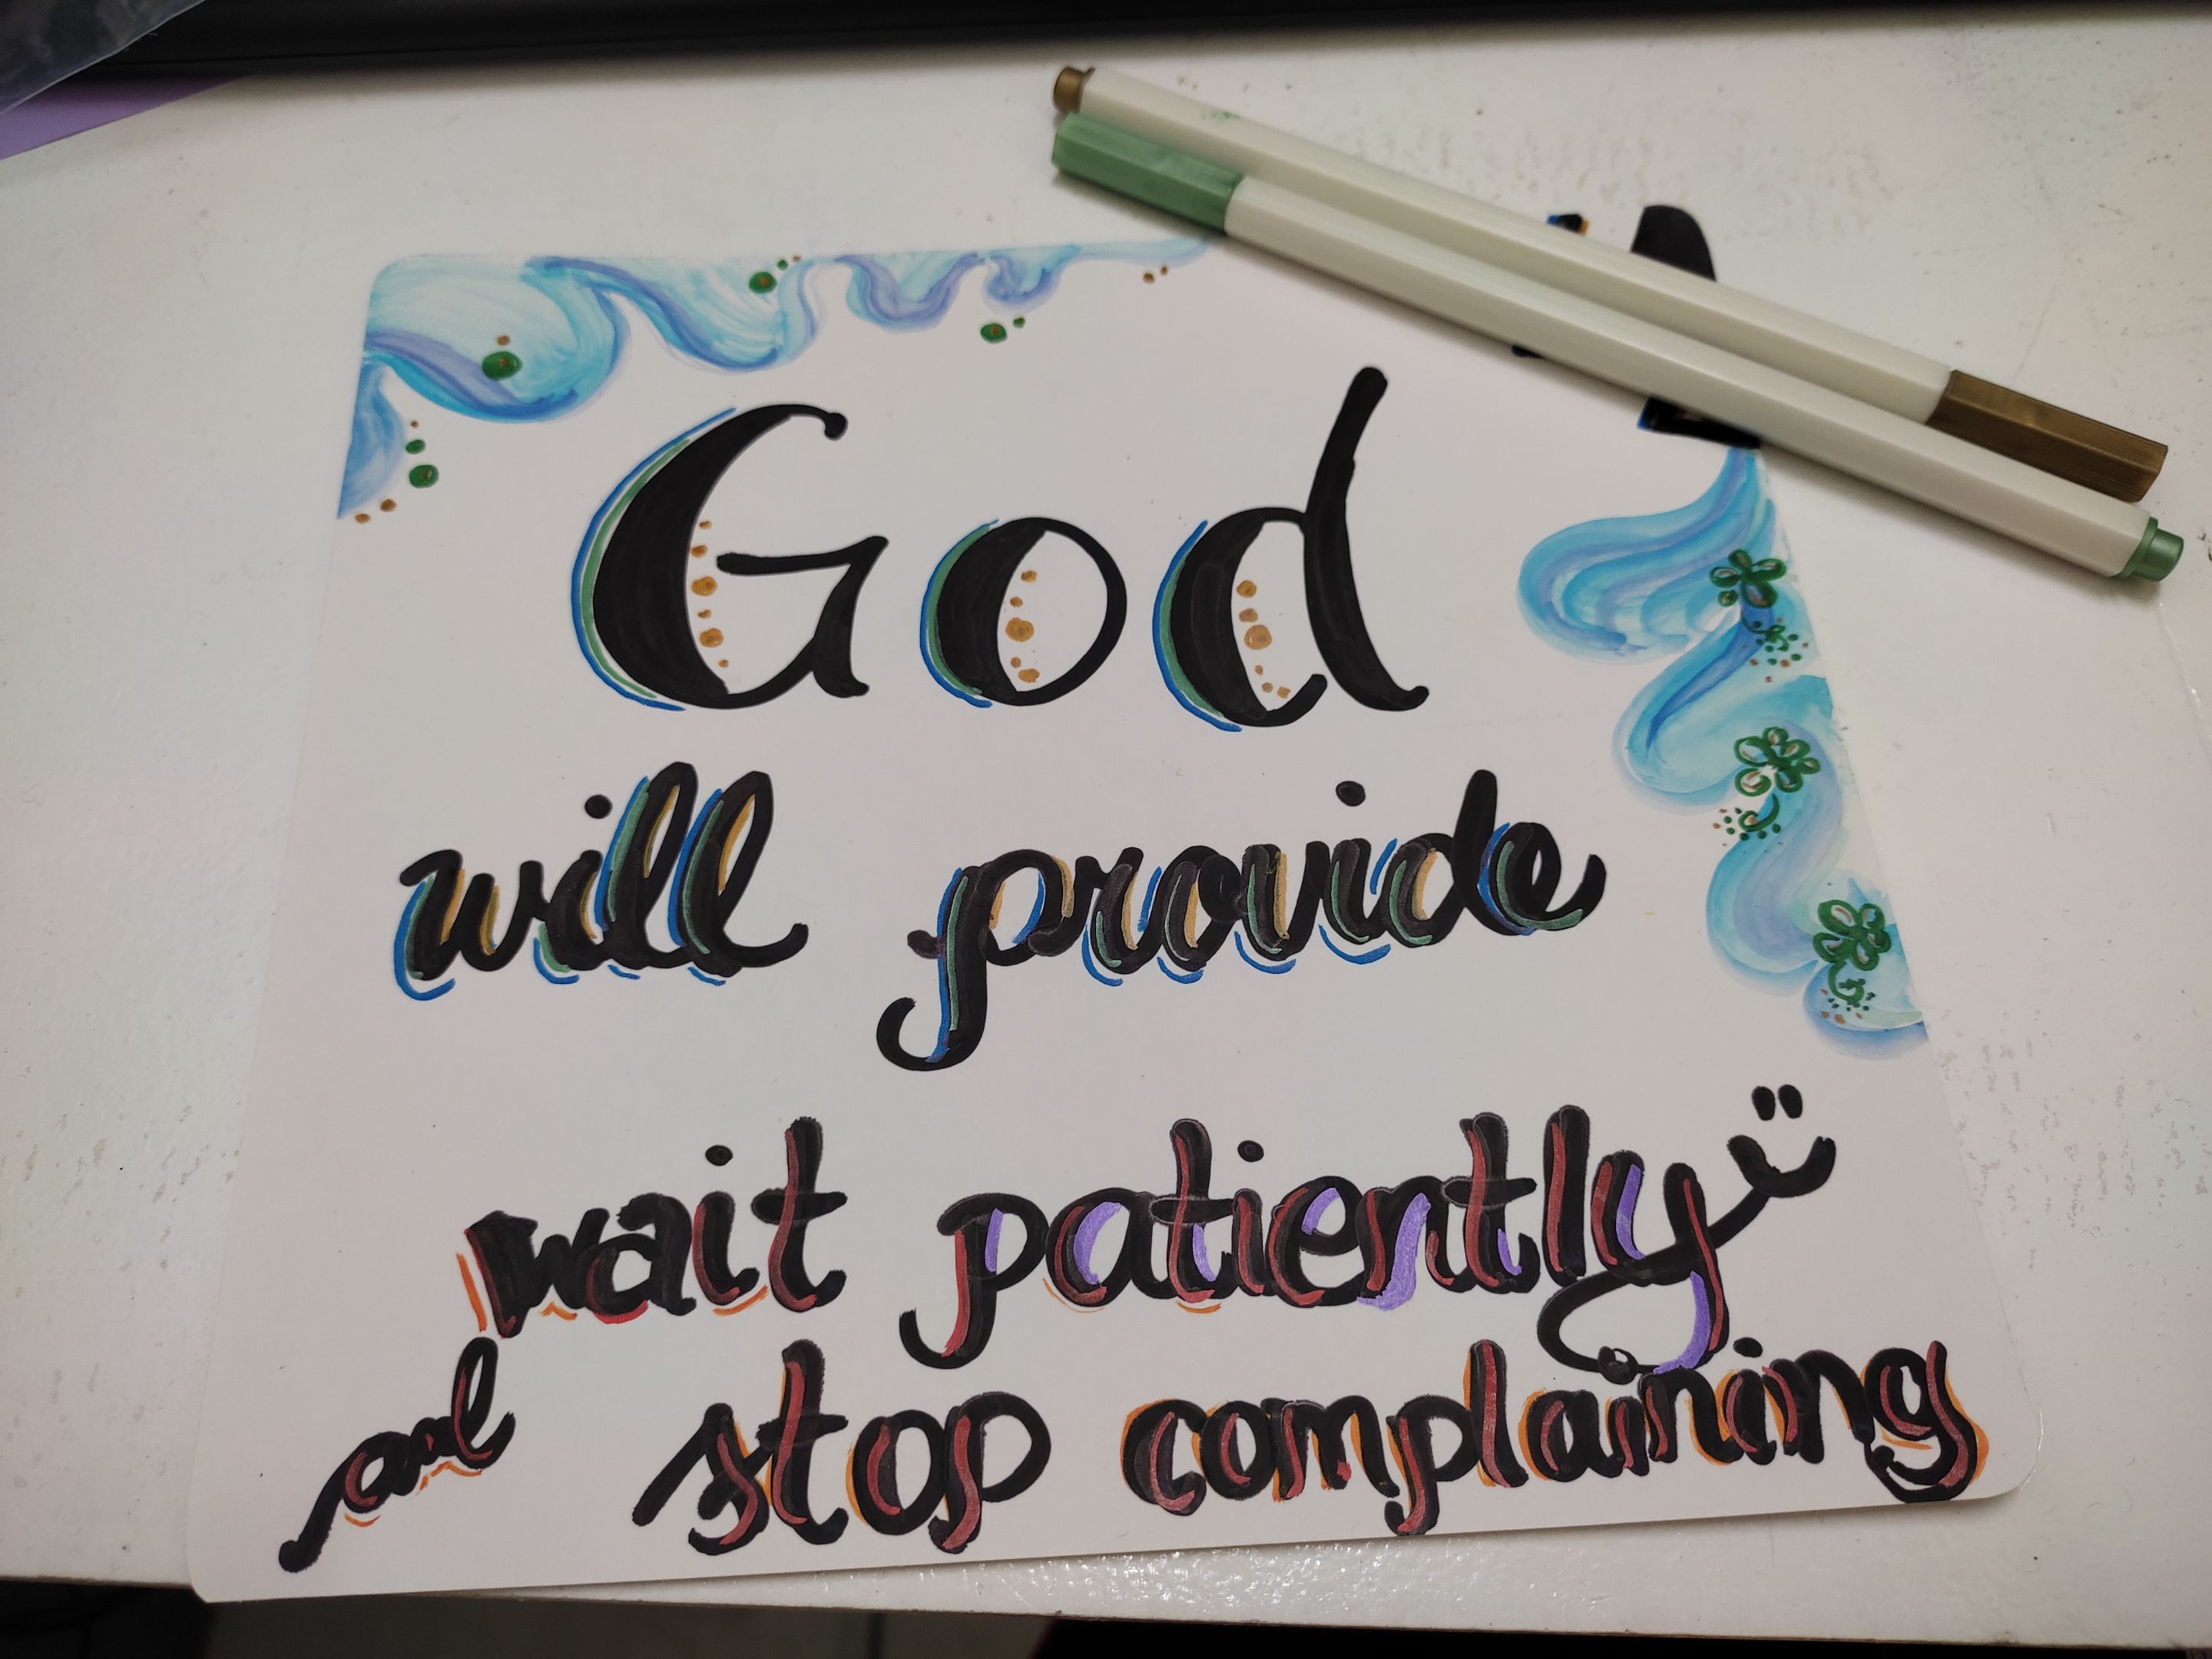 God
will provide
wait patiently
and stop complaining